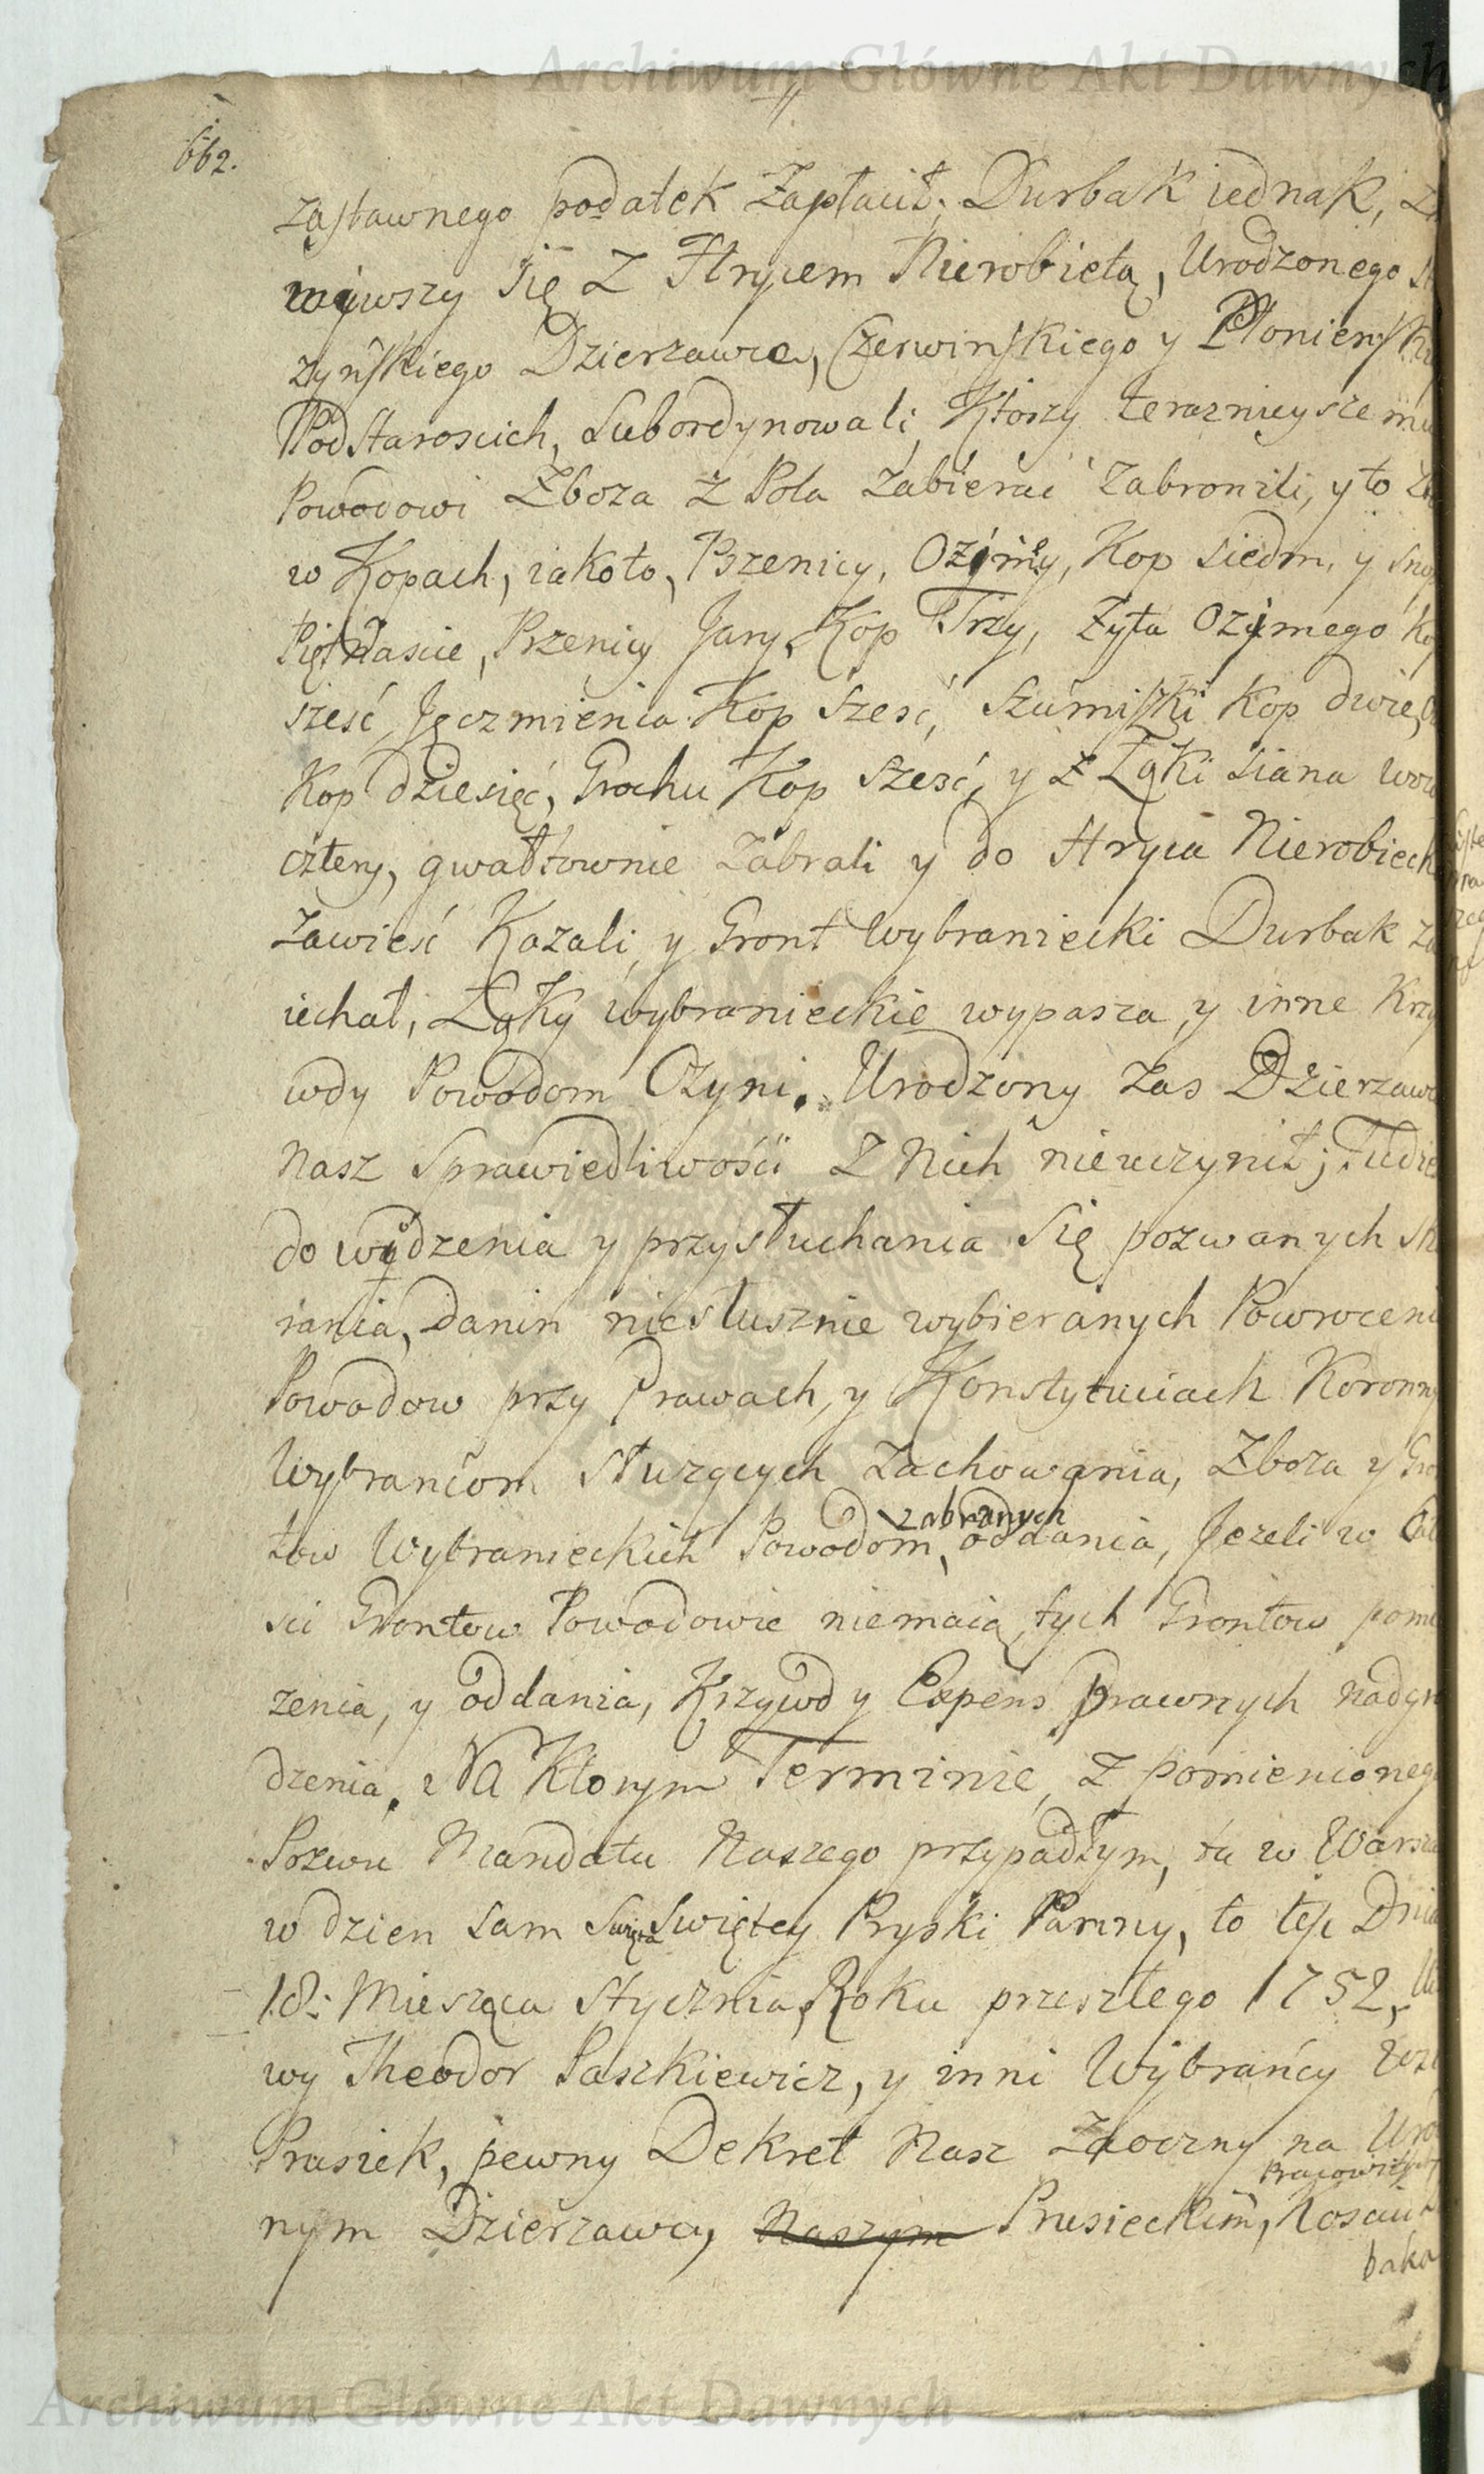 Archiwum Główne Akt Dawnych
662.
zastawnego podatek Zapłacił; Durbak iednak,
mówszy się Z Hrycem Nierobietą, Urodzonego
żyńskiego Dzierzawce, Czerwinskiego y Płonienski
Podstaroscich, Subordynowali, Ktorzy teraznieyszemu
Powodowi Zboza z Pola Zabierać Zabronili, y to
w Kopach, iakoto, Pszenicy, Ozimey, Kop siedm, y
Piętnascie, Pszenicy Jary, Kop Trzy, Zyta Ozimego
sześć, Jęczmienia Kop sześć, Kop dwie,
Kop dziesięć, Grochu Kop sześć, y z Łąki siana
cztery, gwałtownie zabrali y do Hryca Nierobieck
Zawieść Kazali, y Gront Wybraniecki Durbak
iechał, Łąky wybranieckie wypasza, y inne Krzy
wdy Powodom Czyni. Urodzony zas Dzierzaw
Nasz Sprawiedliwości z Nich nieuczynił; Tudzie
do widzenia y przysłuchania się pozwanych
rania, Danin niesłusznie wybieranych Powroceni
Powodow przy Prawach, y Konstytuciach Koronny
Wybrańcom służących Zachowania, Zboza y
zabranych
tow Wybranieckich Powodom, oddania, Jezeli w
sci Grontow Powodowie niemaią, tych Grontow pomi
zenia, y oddania, Krzywd y Expens Prawnych nadgr
dzenia. Na Ktorym Terminie, z pomienionego
Pozwu Mandatu Naszego przypadłym, tu w Warsza
w dzien sam Swięta Swiętey Pryski Panny, to iest Dnia
18: Miesząca stycznia, Roku przeszłego 1752,
wy Theodor Paszkiewicz, y inni Wybrańcy
Prusiek, pewny Dekret Nasz Zaoczny na Uro
nym Dzierzawcy, Naszym Prusieckim,
baka
Archiwum Główne Akt Dawnych